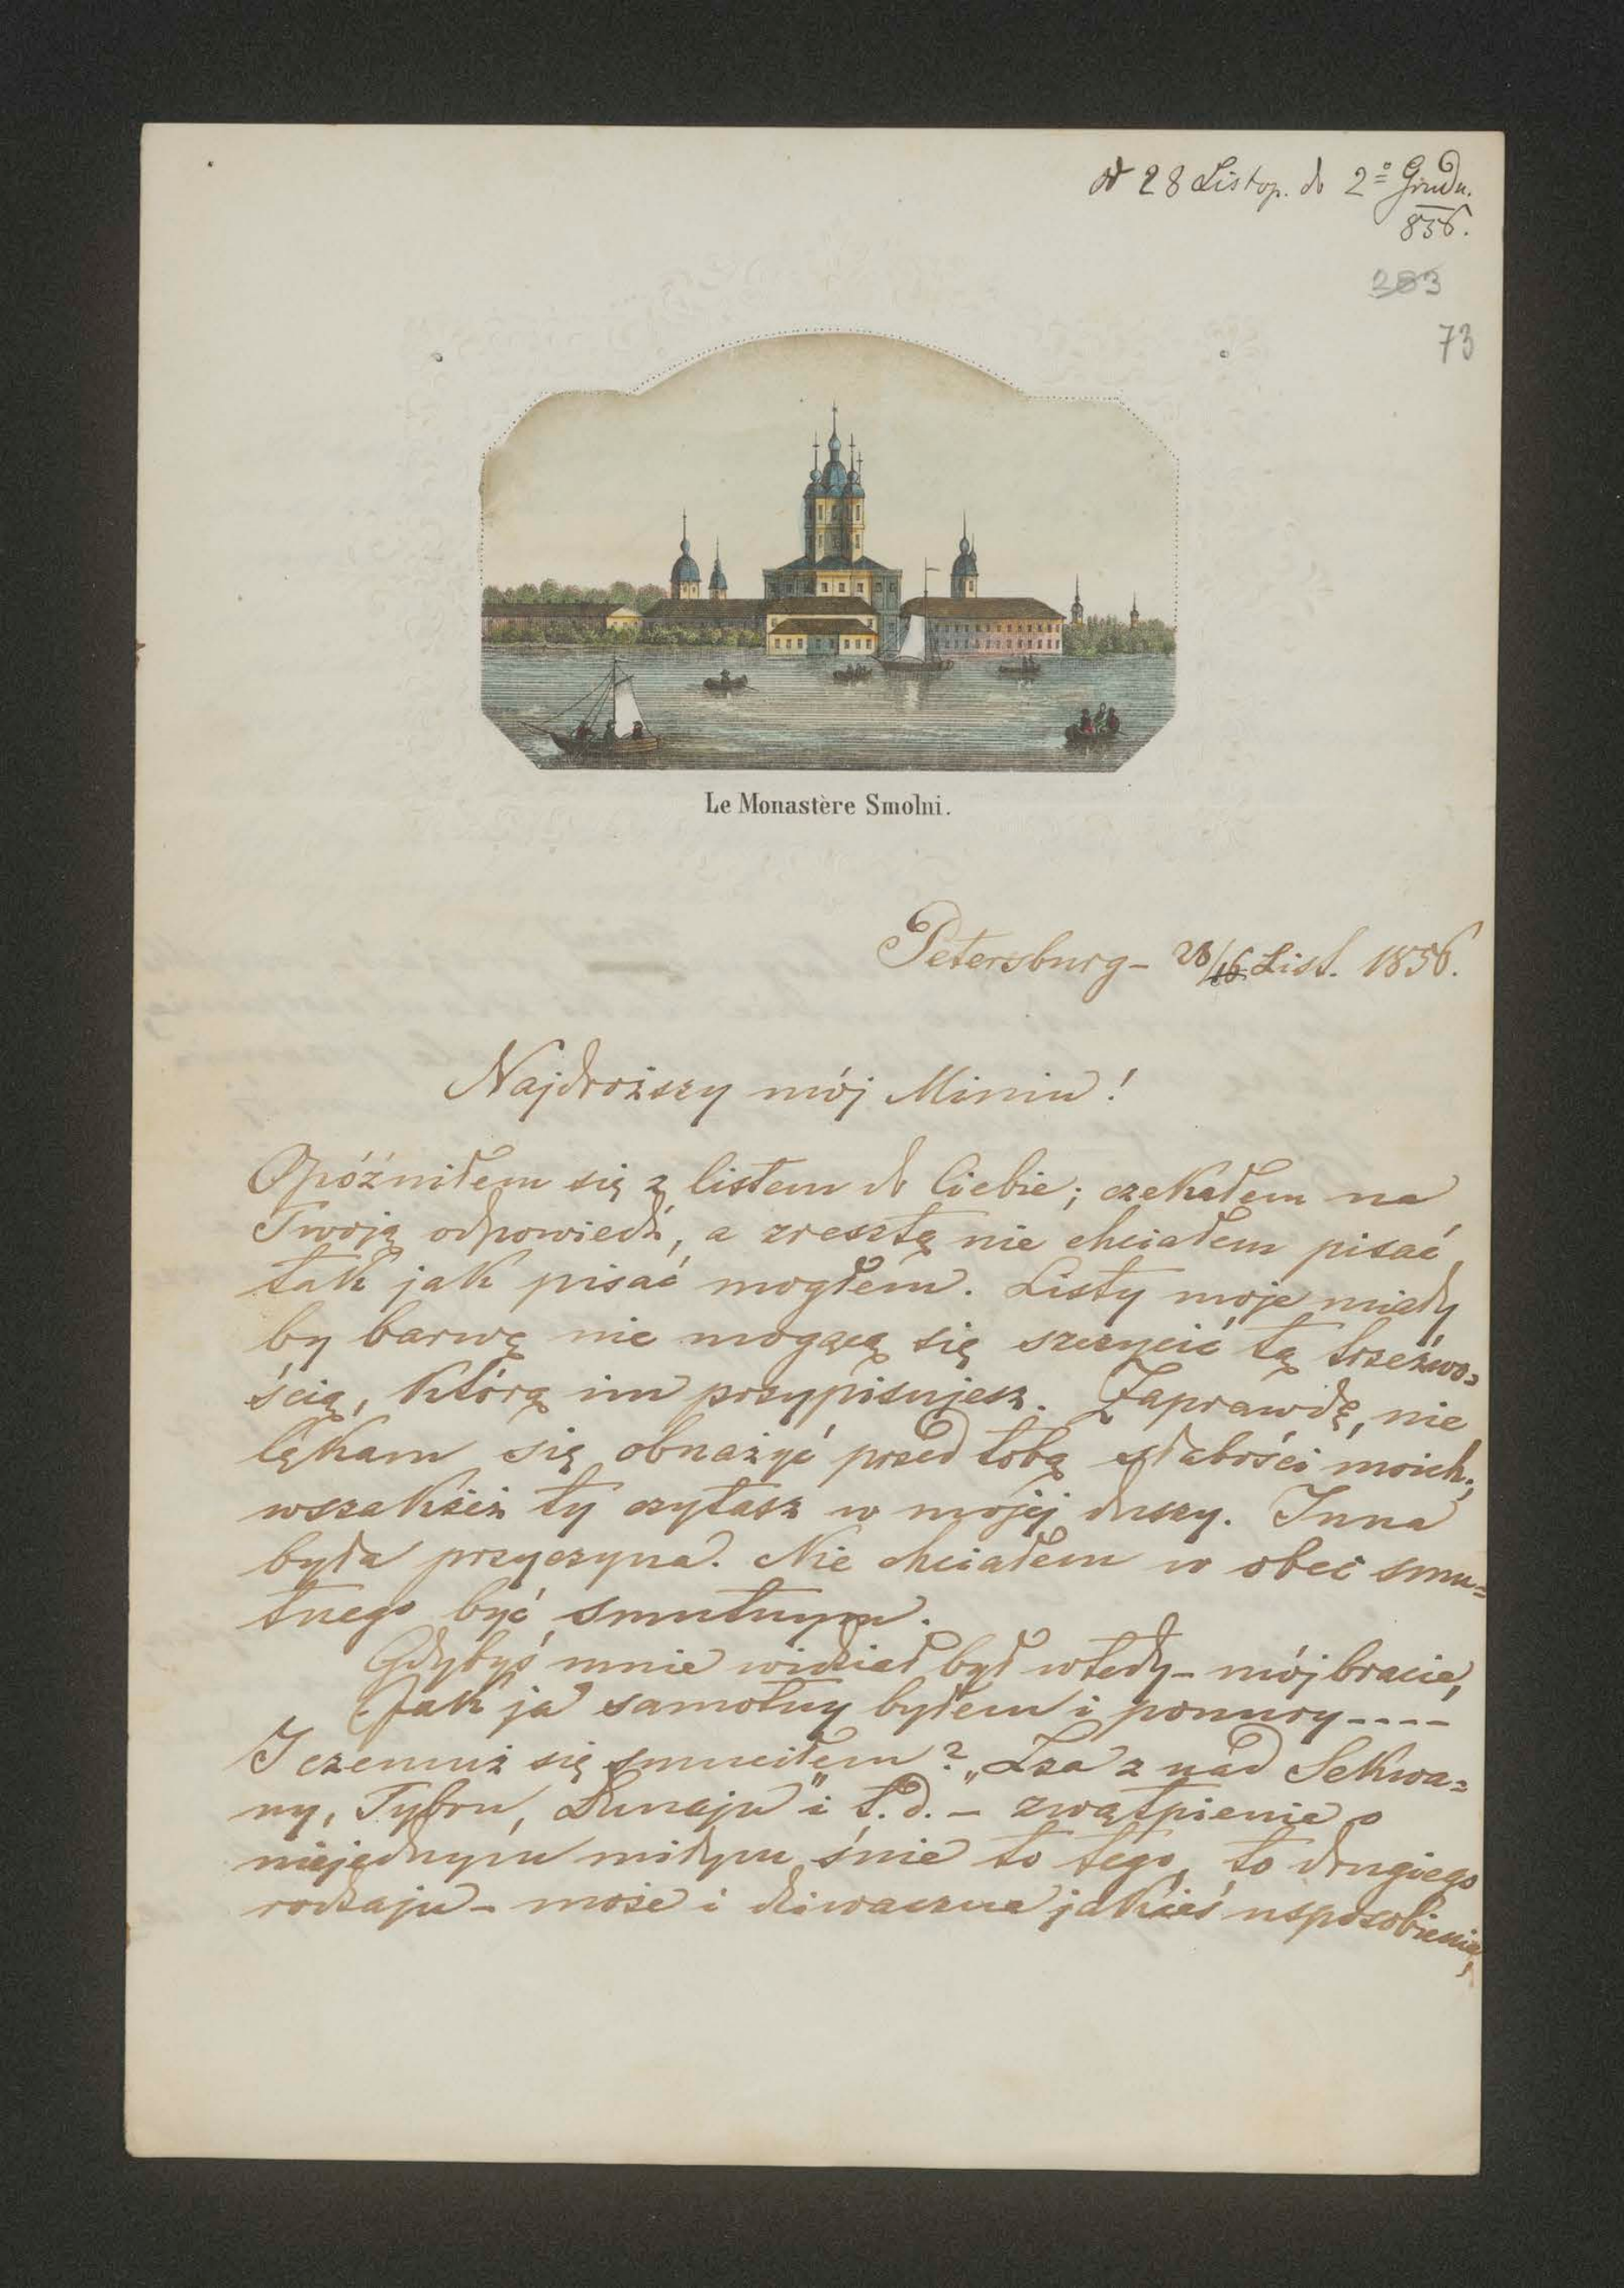 od 28 Listop. do 2º Grudn.
856.
283
73
Le Monastère Smolni.
Petersburg - 28/16 List. 1856.
Najdroższy mój Miniu!
Opóźniłem się z listem do Ciebie; czekałem na
Twoją odpowiedź, a zresztą nie chciałem pisać
tak jak pisać mogłem. Listy moje miały
by barwę nie mogącą się szczycić tą trzeźwo=
ścią, którą im przypisujesz. Zaprawdę, nie
lękam się obnażyć przed tobą słabości moich;
wszakżeż ty czytasz w mojéj duszy. Inna
była przyczyna. Nie chciałem w obec smu=
tnego być smutnym.
Gdybyś mnie widział był wtedy - mój bracie,
Jak ja samotny byłem i ponury - - - -
I czemuż się smuciłem? „Łza z nad Sekwa=
ny, Tybru, Dunaju" i t. d. - zwątpienie o
niejednym miłym śnie to tego, to drugiego
rodzaju - może i dziwaczne jakieś usposobienie,